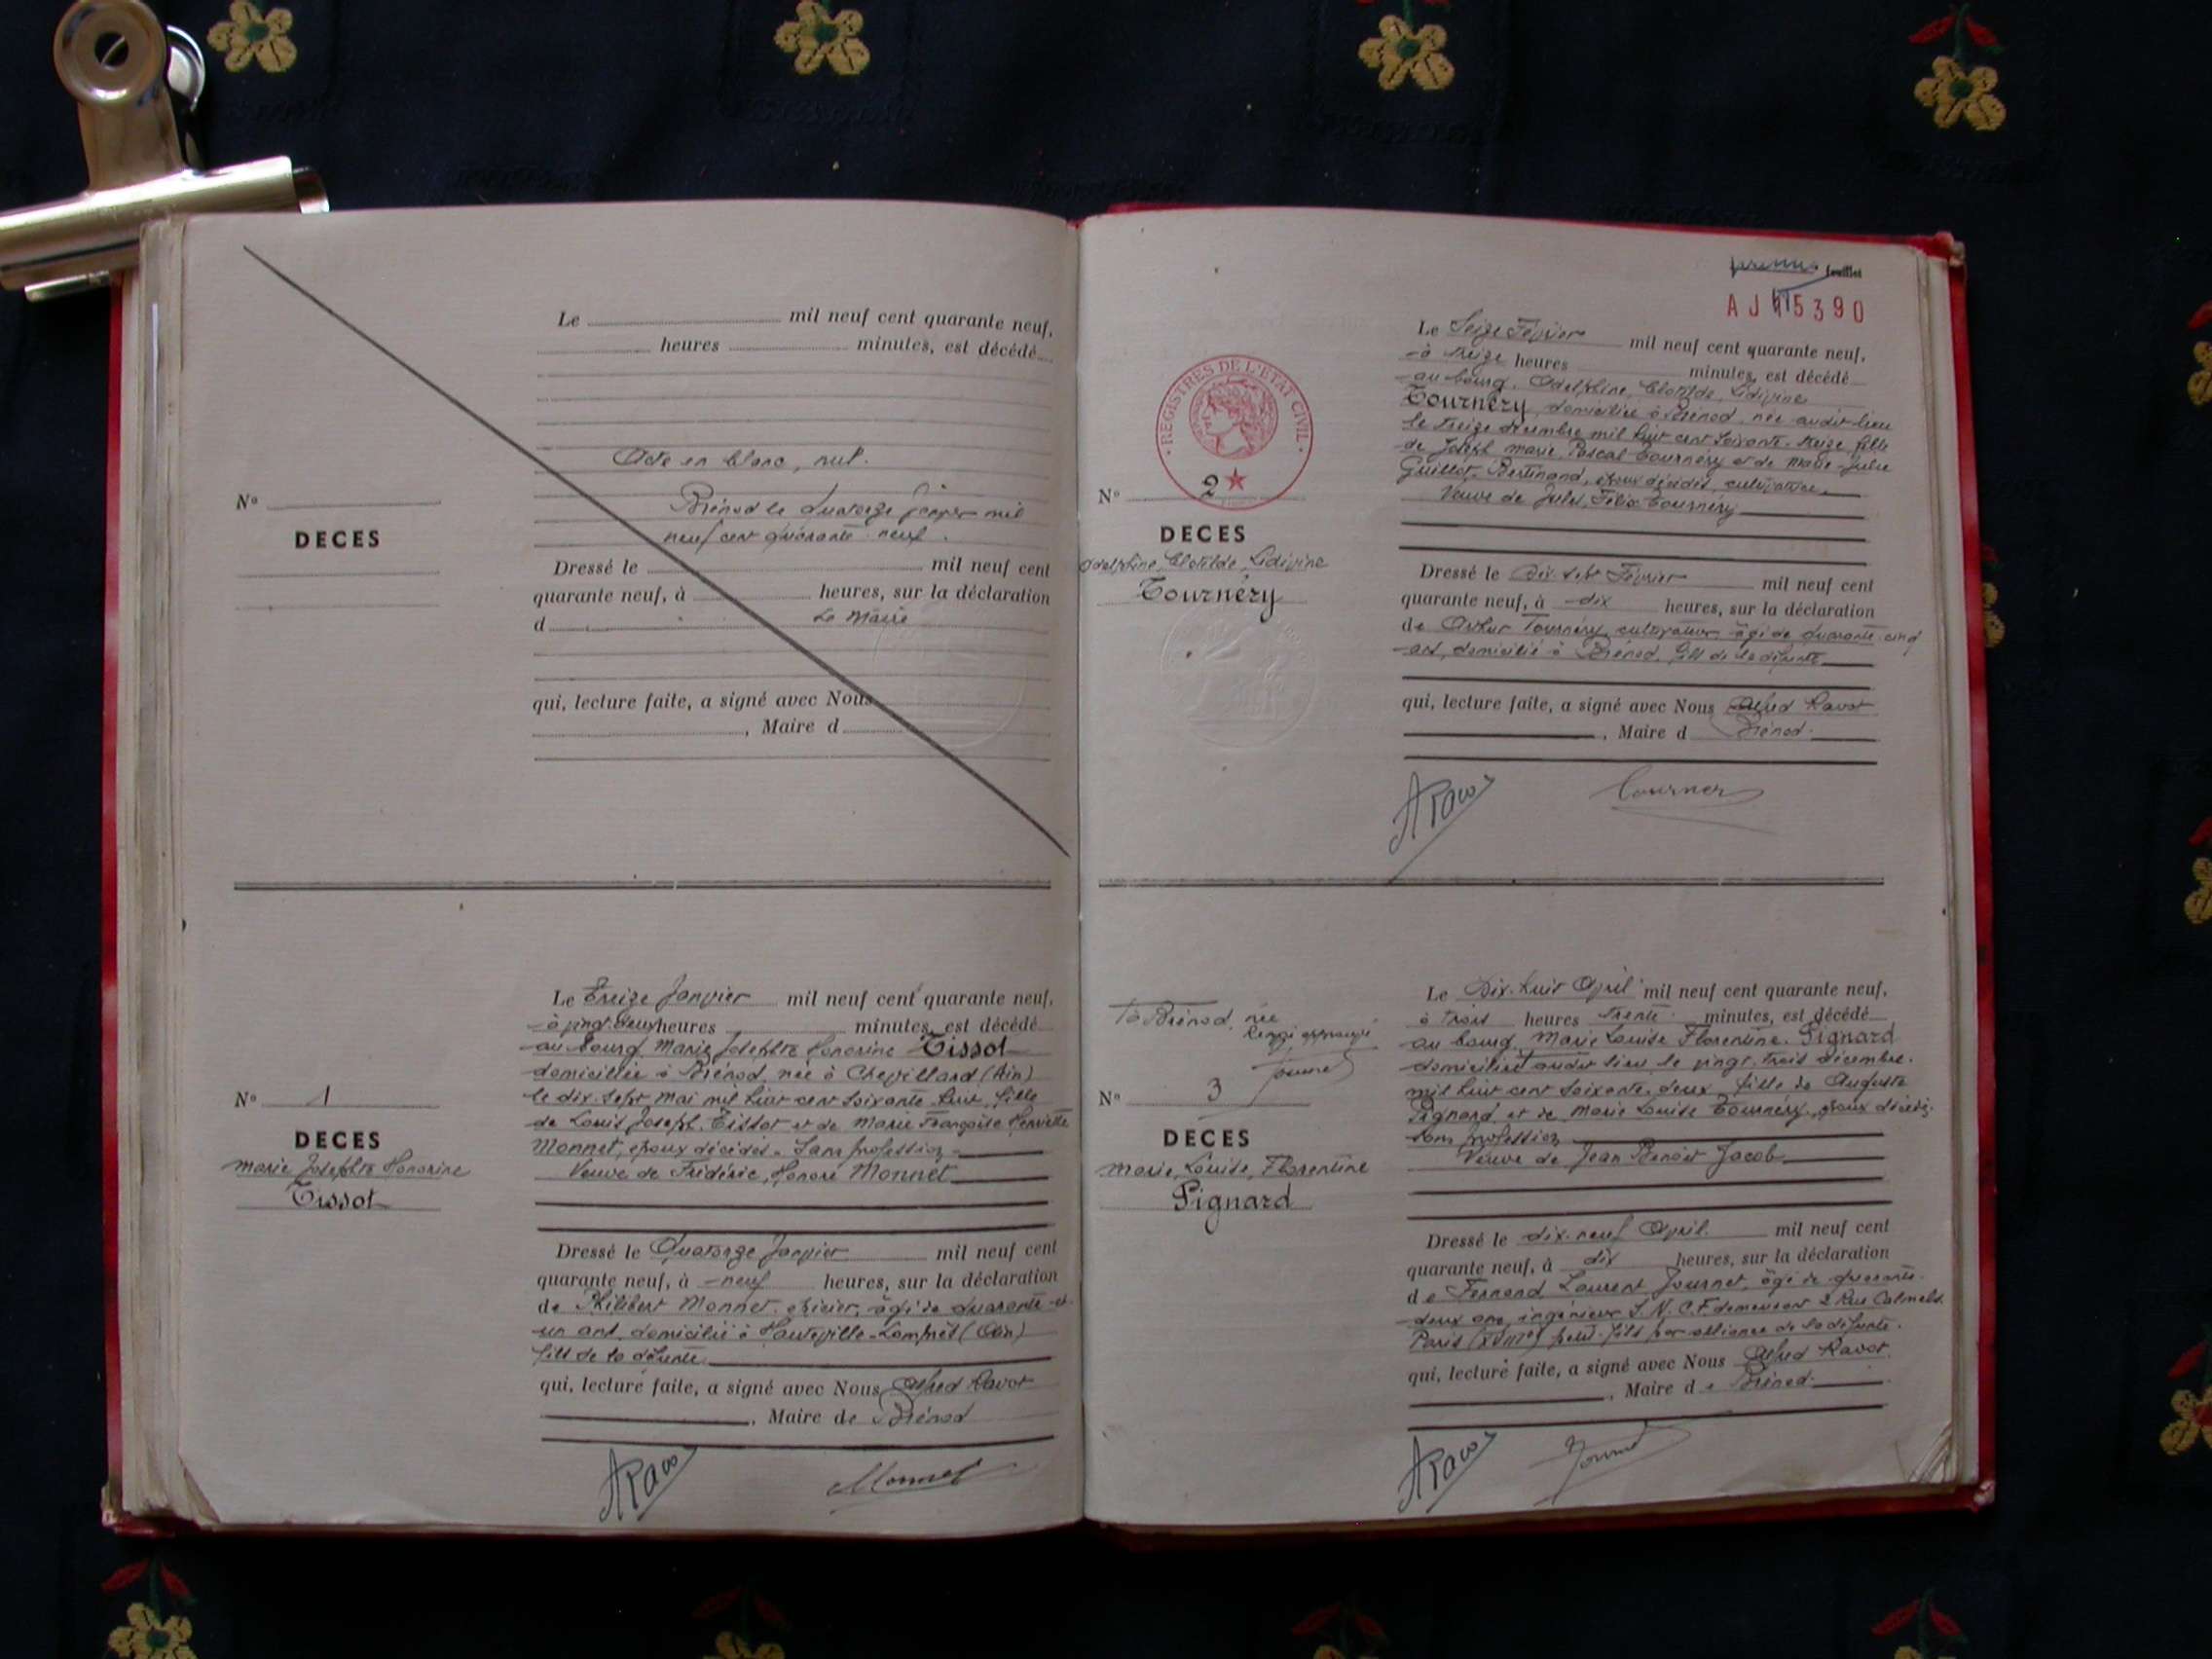 Le mil neuf cent quarante neuf,
heures minutes, est décédé
Acte en blanc, nul.
Brénod le Quatorze Janvier mil
neuf cent quarante neuf.
Nº
DECES
Dressé le mil neuf cent
quarante neuf, à heures, sur la déclaration
d Le Maire
qui, lecture faite, a signé avec Nous
, Maire d
Le Treize Janvier mil neuf cent quarante neuf,
à vingt deux heures minutes, est décédé
au bourg Marie Josephte Honorine Tissot
domiciliée à Brénod, née à Chevillard (Ain)
le dix-sept mai mil huit cent soixante huit, fille
de Louis Joseph Tissot et de Marie Françoise Henriette
Monnet, époux décédés. Sans profession
Veuve de Frédéric, Honoré Monnet
Nº 1
DECES
Marie Josephte Honorine
Tissot
Dressé le Quatorze Janvier mil neuf cent
quarante neuf, à neuf heures, sur la déclaration
de Philibert Monnet, épicier, âgé de quarante et
un ans, domicilié à Hauteville-Lompnès (Ain)
fils de la défunte
qui, lecture faite, a signé avec Nous Alfred Ravot
, Maire de Brénod
ARavot
Monnet
feuillet
AJ 5390
Le Seize Février mil neuf cent quarante neuf,
à treize heures minutes, est décédé
au bourg, Adelphine, Clotilde, Lidivine
Tournéry, domiciliée à Brénod, née audit lieu
le treize décembre mil huit cent soixante-treize fille
de Joseph Marie Pascal Tournéry et de Marie-Julie
Guillot-Bertinand, époux décédés, cultivatrice
Veuve de Jules, Félix Tournéry
REGISTRES DE L'ETAT CIVIL
Nº 2
DECES
Adelphine, Clotilde, Lidivine
Tournéry
Dressé le Dix sept Février mil neuf cent
quarante neuf, à dix heures, sur la déclaration
de Arthur Tournéry, cultivateur âgé de quarante cinq
ans, domicilié à Brénod, fils de la défunte
qui, lecture faite, a signé avec Nous Alfred Ravot
, Maire d Brénod.
ARavot
Tournery
Le Dix-huit Avril mil neuf cent quarante neuf,
à trois heures trente minutes, est décédé
au bourg, Marie Louise Florentine Pignard
domiciliée audit lieu le vingt trois décembre
mil huit cent soixante-deux, fille de Auguste
Pignard et de Marie Louise Tournéry, époux décédés.
sans profession
Veuve de Jean Benoit Jacob
à Brénod, née
Renvoi approuvé
Journet
Nº 3
DECES
Marie, Louise, Florentine
Pignard
Dressé le dix-neuf Avril mil neuf cent
quarante neuf, à dix heures, sur la déclaration
de Fernand Laurent Journet, âgé de quarante-
deux ans, ingénieur S.N.C.F demeurant 2 Rue Calmels
Paris petit-fils par alliance de la défunte.
qui, lecture faite, a signé avec Nous Alfred Ravot
, Maire de Brénod.
ARavot
Journet